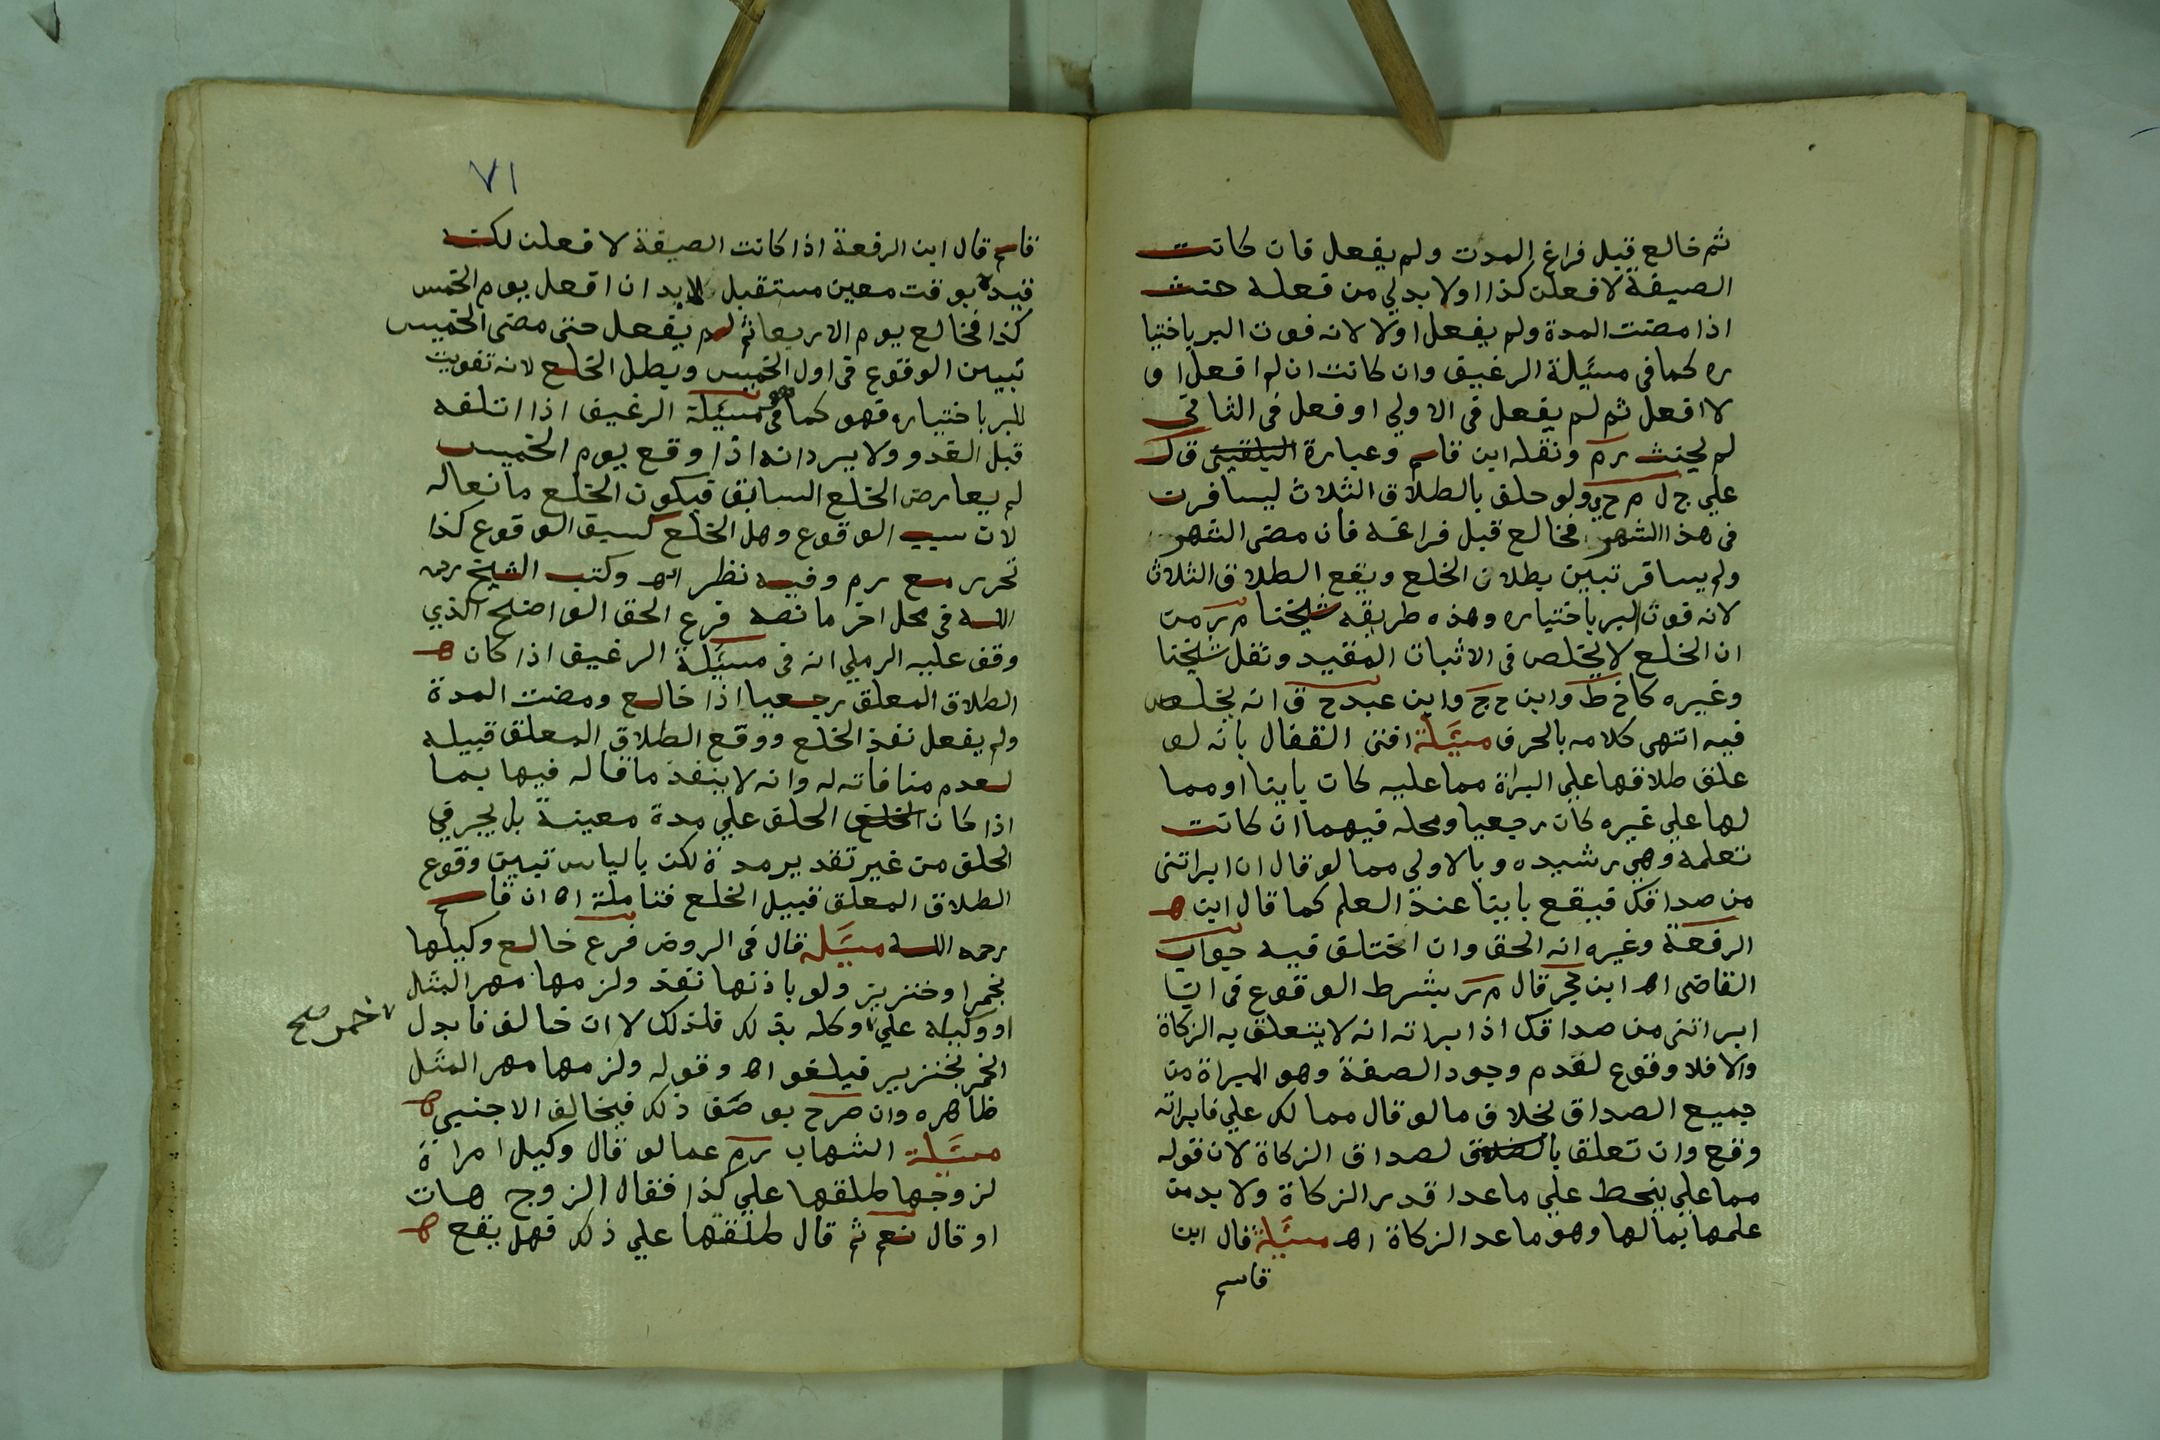 ثم خالع قبل فراغ المدت ولم يفعل فان كانت
الصيغة لافعلن كذا اولا بدلي من فعله حنث
اذا مضت المدة ولم يفعل اولا لانه فوت البر باختيا
ره كما في مسئلة الرغيف وان كانت ان لم افعل او
لا افعل ثم لم يفعل في الاولي او فعل في الثاني
لم يحنث رم ونقله ابن قاسم وعبارة ق ل
علي ج ل م ولو حلف بالطلاق الثلاث ليسافرن
في هذا الشهر فخالع قبل فراغه فان مضى الشهر
ولم يسافر تبين بطلان الخلع ويقع الطلاق الثلاث
لانه فوت البر باختياره وهذه طريقه شيخنا م ر من
ان الخلع لا يخلص في الاثبات المقيد ونقل شيخنا
وغيره كا خ ط وابن ح ج وابن عبد ح ق انه يخلص
فيه انتهى كلامه بالحرف مسئلة افتى القفال بانه لو
علق طلاقها علي البراة مما عليه كان باينا او مما
لها علي غيره كان رجعيا ومحله فيهما ان كانت
تعلمه وهي رشيده وبالاولي مما لو قال ان ابراتني
من صداقك فيقع باينا عند العلم كما قال ابن
الرفعة وغيره انه الحق وان اختلف فيه جواب
القاضى اه ابن حجر قال م ر يشرط الوقوع في ان
ابراتني من صداقك اذا براته انه لا يتعلق به الزكاة
والا فلا وقوع لعدم وجود الصفة وهو البراة من
جميع الصداق بخلاف ما لو قال مما لك علي فابراته
وقع وان تعلق لصداق الزكاة لان قوله
مما علي ينحط علي ما عدا قدر الزكاة ولا بد من
علمها بمالها وهو ما عد الزكاة اه مسئلة قال ابن
قاسم
٧١
قاسم قال ابن الرفعة اذا كانت الصيغة لافعلن لكنه
قيده بوقت معين مستقبل لابد ان افعل يوم الخمس
كذا فخالع يوم الاربعا ثم لم يفعل حتى مضى الخميس
تبين الوقوع في اول الخميس وبطل الخلع لانه تفويت
للبر باختياره فهو كما في مسئلة الرغيف اذا اتلفه
قبل الغد وولا يرد انه اذا وقع يوم الخميس
لم يعارض الخلع السابق فيكون الخلع مانعا له
لان سبب الوقوع وهل الخلع كسبق الوقوع كذا
تحرر مع رم وفيه نظر اه وكتب الشيخ رحمه
الله في محل اخر ما نصه فرع الحق الواضح الذي
وقف عليه الرملي انه في مسئلة الرغيف اذا كان
الطلاق المعلق رجعيا اذا خالع ومضت المدة
ولم يفعل نفذ الخلع ووقع الطلاق المعلق قبيله
لعدم منافاته له وانه لا ينفذ ما قاله فيها بما
اذا كان الحلف علي مدة معينة بل يجر في
الحلف من غير تقدير مدة لكن بالياس تبين وقوع
الطلاق المعلق قبيل الخلع فتامله اه ان قاسم
رحمه الله مسئله قال في الروض فرع خالع وكيلها
بخمر او خنزير ولو باذنها نفذ ولزمها مهر المثل
او وكيله علي وكله بذلك فلذلك لا ان خالف فابدل
خمر صح
الخمر بخنزير فيلغو اه وقوله ولزمها مهر المثل
ظاهره وان صرح بوصف ذلك فيخالف الاجنبي
مسئلة الشهاب رم عما لو قال وكيل امراة
لزوجها طلقها علي كذا فقال الزوج هات
او قال نعم ثم قال طلقتها علي ذلك فهل يقع